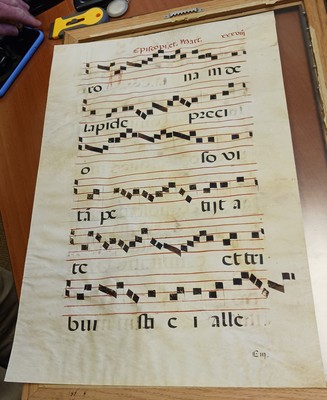 Episcopi et Mart. xxxviij
ro na in de
lapide preci
o so vi
ta pe tijt a
te et tri
buı sti e i alle
E iij.